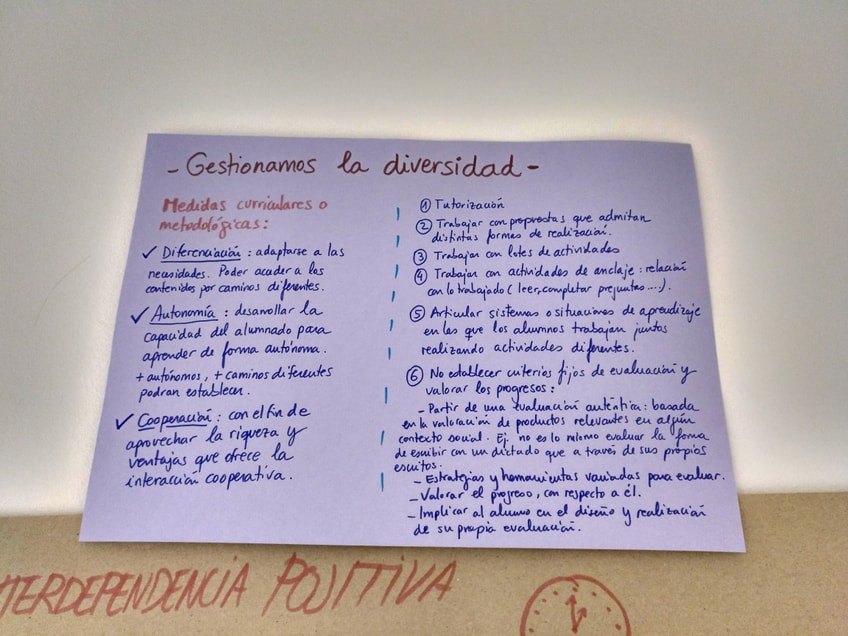 - Gestionamos la diversidad -
Medidas curriculares o
metodológicas:
✓ Diferenciación : adaptarse a las
necesidades. Poder acceder a los
contenidos por caminos diferentes.
✓ Autonomía : desarrollar la
capacidad del alumnado para
aprender de forma autónoma.
+ autónomos, + caminos diferentes
podran establecer.
✓ Cooperación : con el fin de
aprovechar la riqueza y
ventajas que ofrece la
interacción cooperativa.
① Tutorización
② Trabajar con propuestas que admitan
distintas formas de realización.
③ Trabajar con lotes de actividades
④ Trabajar con actividades de anclaje : relación
con lo trabajado ( leer, completar preguntas ....).
⑤ Articular sistemas o situaciones de aprendizaje
en las que los alumnos trabajan juntos
realizando actividades diferentes.
⑥ No establecer criterios fijos de evaluación y
valorar los progresos :
- Partir de una evaluación auténtica : basada
en la valoración de productos relevantes en algún
contexto social. Ej. no es lo mismo evaluar la forma
de escibir con un dictado que a través de sus propios
escritos.
- Estrategias y herramientas variadas para evaluar.
- Valorar el progreso, con respecto a él.
- Implicar al alumno en el diseño y realización
de su propia evaluación.
TERDEPENDENCIA POSITIVA